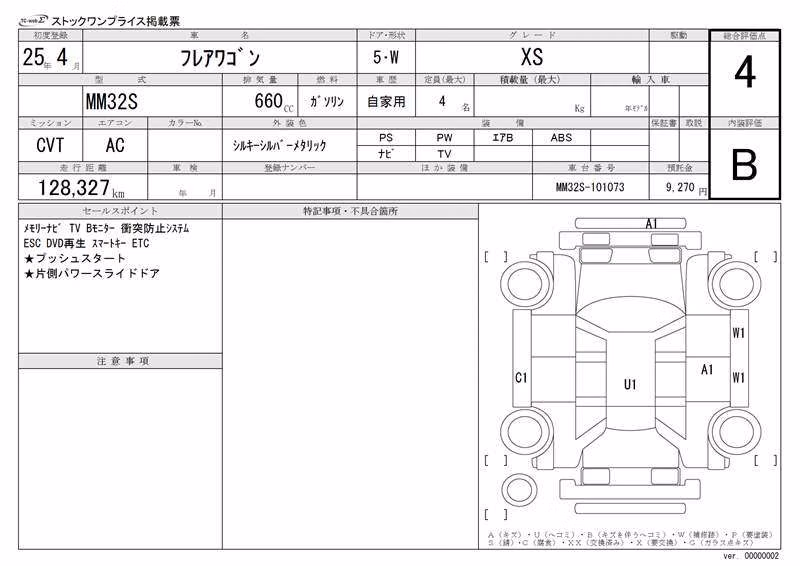 TC-webΣ ストックワンプライス掲載票
初度登録 車名 ドア・形状 グレード 駆動 総合評価点
25年 4月 フレアワゴン 5・W XS 4
型式 排気量 燃料 車歴 定員(最大) 積載量(最大) 輸入車
MM32S 660CC ガソリン 自家用 4名 Kg 年モデル
ミッション エアコン カラーNo. 外装色 装備 保証書 取説 内装評価
CVT AC シルキーシルバーメタリック PS PW エアB ABS B
ナビ TV
走行距離 車検 登録ナンバー ほか装備 車台番号 預託金
128,327km 年 月 MM32S-101073 9,270円
セールスポイント 特記事項・不具合箇所
メモリーナビ TV Bモニター 衝突防止システム
ESC DVD再生 スマートキー ETC
★プッシュスタート
★片側パワースライドドア
注意事項
A1
[ ] [ ]
W1
A1
C1 U1 W1
[ ] [ ]
[ ]
A(キズ)・U(ヘコミ)・B(キズを伴うヘコミ)・W(補修跡)・P(要塗装)
S(錆)・C(腐食)・XX(交換済み)・X(要交換)・G(ガラス点キズ)
ver. 00000002